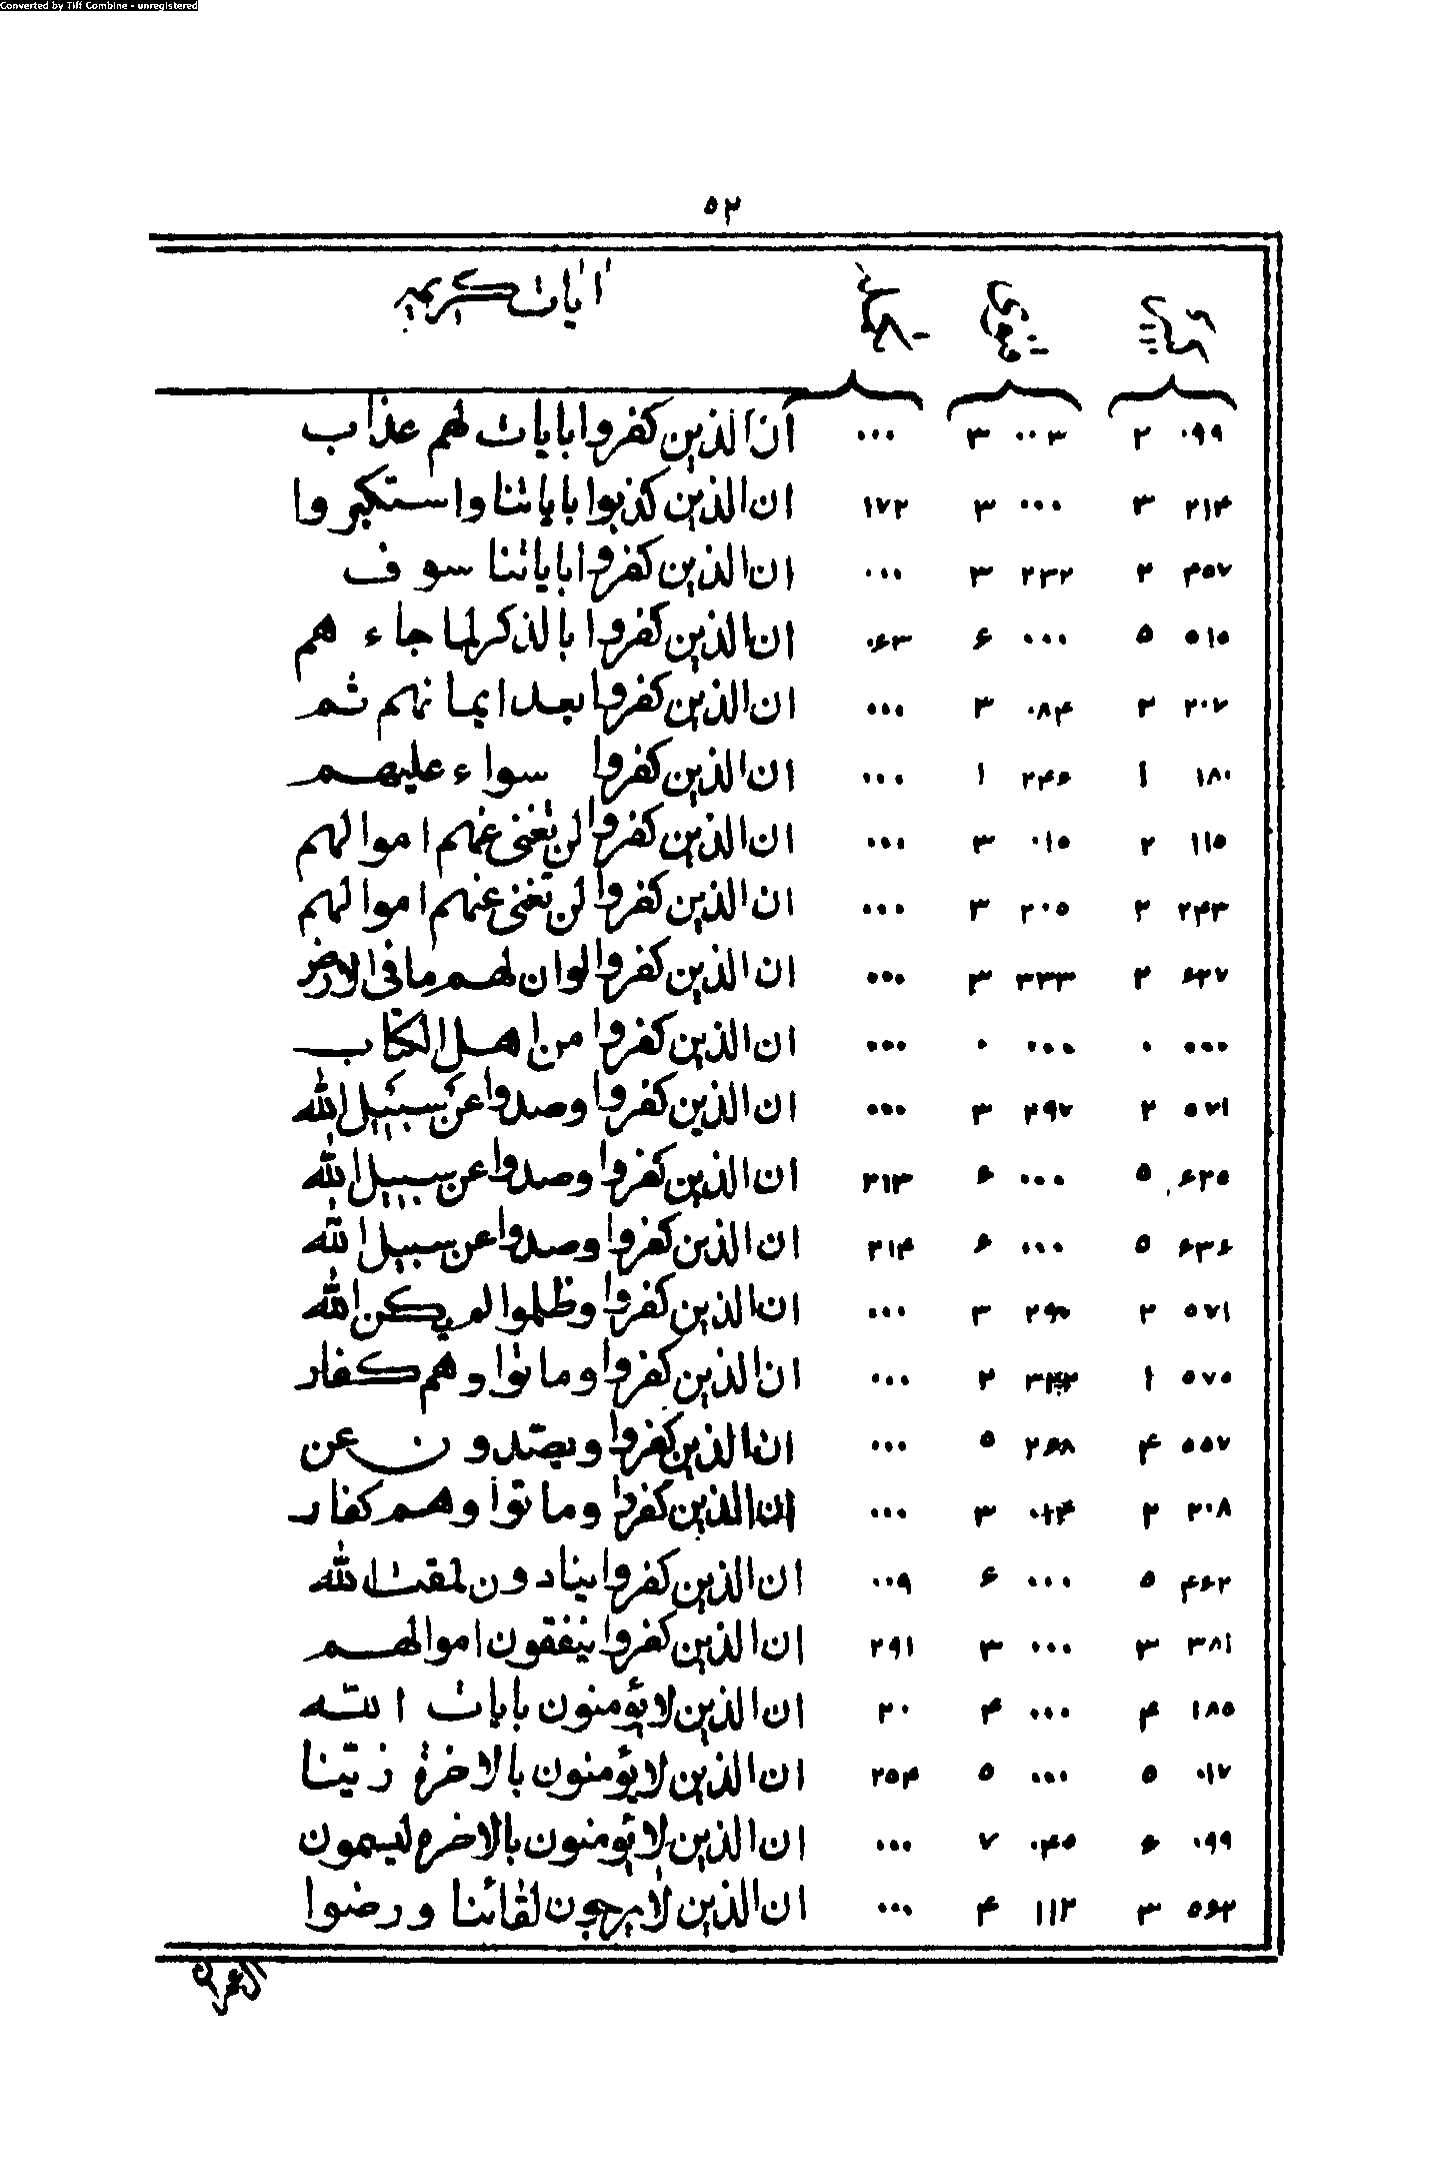 Converted by Tiff Combine - unregistered
۵۲
ایات کریمه
۰۹۹ ۲ ۰۰۳ ۳ ۰۰۰ ان الذین کفروا بایات لهم عذاب
۲۱۴ ۳ ۰۰۰ ۳ ۱۷۲ ان الذین کذبوا بایاتنا واستکبروا
۴۵۷ ۲ ۲۳۲ ۳ ۰۰۰ ان الذین کفروا بایاتنا سوف
۵۱۵ ۵ ۰۰۰ ۶ ۰۶۳ ان الذین کفروا بالذکر لما جاء هم
۲۰۷ ۲ ۰۸۴ ۳ ۰۰۰ ان الذین کفروا بعد ایمانهم ثم
۱۸۰ ۱ ۲۴۶ ۱ ۰۰۰ ان الذین کفروا سواء علیهم
۱۱۵ ۲ ۰۱۵ ۳ ۰۰۰ ان الذین کفروا لن تغنی عنهم اموالهم
۲۴۳ ۲ ۲۰۵ ۳ ۰۰۰ ان الذین کفروا لن تغنی عنهم اموالهم
۶۲۷ ۲ ۳۳۳ ۳ ۰۰۰ ان الذین کفروا لوان لهم مافی الارض
۰۰۰ ۰ ۰۰۰ ۰ ۰۰۰ ان الذین کفروا من اهل الکتاب
۵۷۱ ۲ ۲۹۷ ۳ ۰۰۰ ان الذین کفروا وصدوا عن سبیل الله
۶۲۵ ۵ ۰۰۰ ۶ ۲۱۳ ان الذین کفروا وصدوا عن سبیل الله
۶۳۶ ۵ ۰۰۰ ۶ ۲۱۴ ان الذین کفروا وصدوا عن سبیل الله
۵۷۱ ۲ ۳ ۰۰۰ ان الذین کفروا وظلموا لم یکن الله
۵۷۵ ۱ ۲ ۰۰۰ ان الذین کفروا وماتوا وهم کفار
۵۵۷ ۴ ۲۶۸ ۵ ۰۰۰ ان الذین کفروا ویصدون عن
۲۰۸ ۲ ۳ ۰۰۰ ان الذین کفروا وماتوا وهم کفار
۴۶۲ ۵ ۰۰۰ ۶ ۰۰۹ ان الذین کفروا ینادون لمقت الله
۳۸۱ ۳ ۰۰۰ ۳ ۲۹۱ ان الذین کفروا ینفقون اموالهم
۱۸۵ ۴ ۰۰۰ ۴ ۲۰ ان الذین لا یؤمنون بایات الله
۰۱۷ ۵ ۰۰۰ ۵ ۲۵۴ ان الذین لا یؤمنون بالاخرة زیّنا
۰۹۹ ۶ ۰۴۵ ۷ ۰۰۰ ان الذین لا یؤمنون بالاخره لیسمون
۵۶۲ ۳ ۱۱۲ ۴ ۰۰۰ ان الذین لا یرجون لقائنا ورضوا